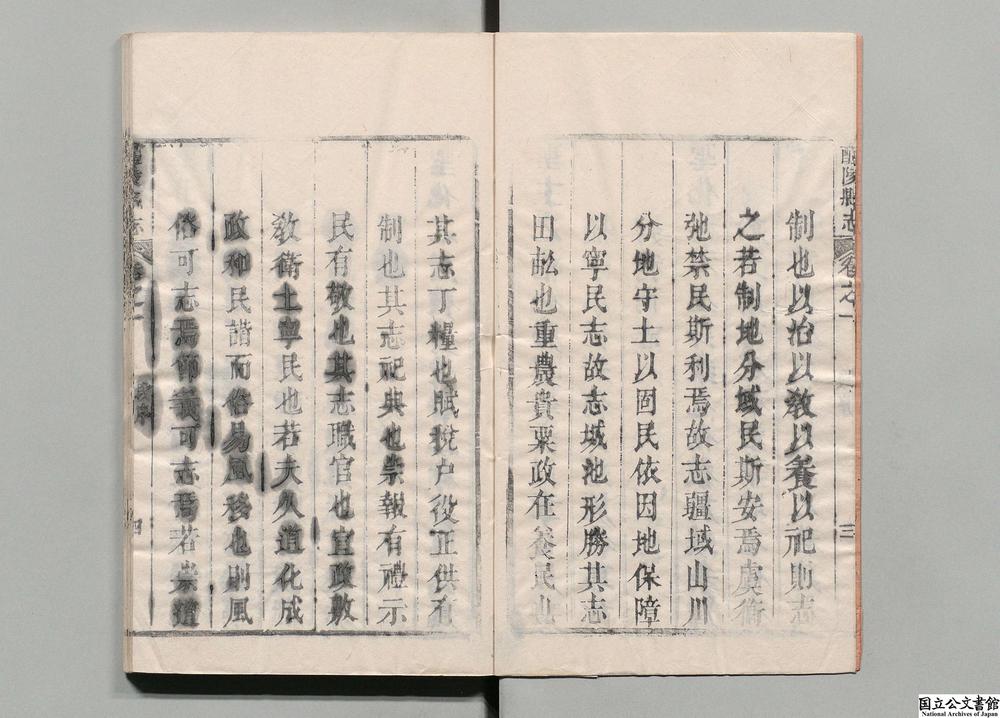 醴陵縣志
卷之一
三
制也以治以敎以養以祀則志
之若制地分域民斯安焉虞衡
弛禁民斯利焉故志疆域山川
分地守土以固民依因地保障
以寧民志故志城池形勝其志
田畝也重農貴粟政在養民也
其志丁糧也賦稅户役正供有
制也其志祀典也崇報有禮示
民有敬也其志職官也宣政敷
敎衛土寧民也若夫久道化成
政和民諧而俗易風移也則風
俗可志焉節義可志焉若崇道
醴陵縣志
卷之一
四
国立公文書館
National Archives of Japan